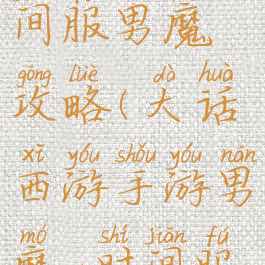 间服男魔
gōng lüè dà huà
攻略(大话
xī yóu shǒu yóu nán
西游手游男
mó shí jiān fú